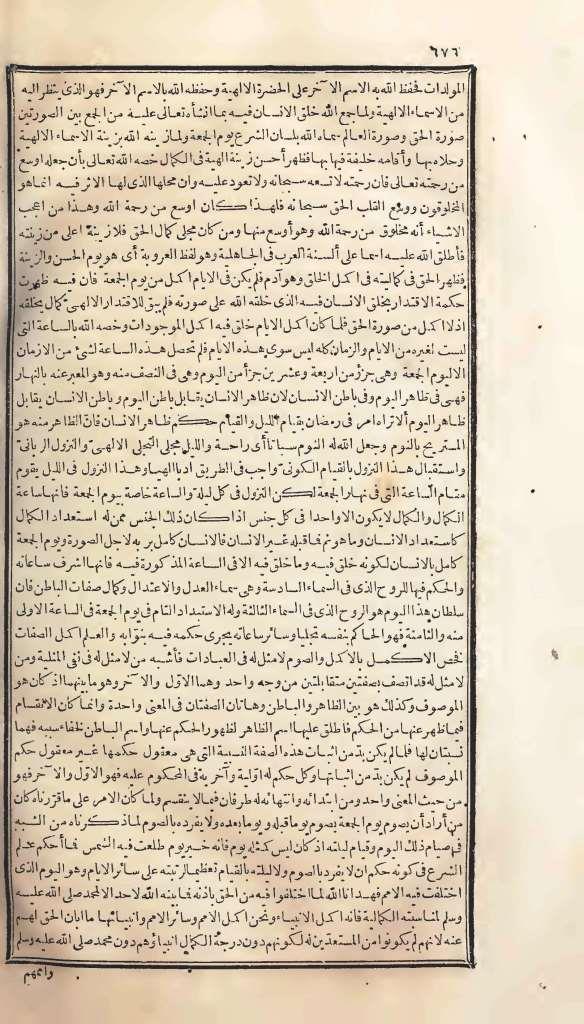 ٦٧٦
المولدات فحفظ الله به الاسم الآخر على الحضرة الالهية وحفظه الله بالاسم الآخر فهو الذي ينظر اليه
من الاسماء الالهية ولما جمع الله خلق الانسان فيه بما أنشأه تعالى عليه من الجمع بين الصورتين
صورة الحق وصورة العالم سماه الله بلسان الشرع يوم الجمعة ولما زينه الله بزينة الاسماء الالهية
وحلاه بها وأقامه خليفة فيها بها فظهر أحسن زينة الهية في الكمال خصه الله تعالى بأن جعله أوسع
من رحمته تعالى فان رحمته لا تسعه سبحانه ولا تعود عليه وان محلها الذي لها الاثر فيه انما هو
المخلوقون ووسع القلب الحق سبحانه فلهذا كان أوسع من رحمة الله وهذا من أعجب
الاشياء أنه مخلوق من رحمة الله وهو أوسع منها ومن كان مجلى كمال الحق فلا زينة أعلى من زينته
فأطلق الله عليه اسما على ألسنة العرب في الجاهلية وهو لفظ العروبة أي هو يوم الحسن والزينة
فظهر الحق في كماليته في اكمل الخلق وهو آدم فلم يكن في الايام اكمل من يوم الجمعة فان فيه ظهرت
حكمة الاقتدار بخلق الانسان فيه الذي خلقه الله على صورته فلم يبق للاقتدار الالهي كمال يخلقه
اذ لا اكمل من صورة الحق فلما كان أكمل الايام خلق فيه اكمل الموجودات وخصه الله بالساعة التي
ليست لغيره من الايام والزمان كله ليس سوى هذه الايام فلم تحصل هذه الساعة لشئ من الازمان
الا ليوم الجمعة وهي جزؤ من أربعة وعشرين جزأ من اليوم وهي في النصف منه وهو المعبر عنه بالنهار
فهي في ظاهر اليوم وفي باطن الانسان لان ظاهر الانسان يقابل باطن اليوم وباطن الانسان يقابل
ظاهر اليوم ألا تراه أمر في رمضان بقيام الليل والقيام حكم ظاهر الانسان فان الظاهر منه هو
المستريح بالنوم وجعل الله له النوم سباتا أي راحة والليل مجلى التجلى الالهي والنزول الرباني
واستقبال هذا النزول بالقيام الكوني واجب في الطريق أدبا الهيا وهذا النزول في الليل يقوم
مقام الساعة التي في نهار الجمعة لكن النزول في كل ليلة والساعة خاصة بيوم الجمعة فانها ساعة
الكمال والكمال لا يكون الا واحدا في كل جنس اذا كان ذلك الجنس ممن له استعداد الكمال
كاستعداد الانسان وما هو ثم فما قبله غير الانسان فالانسان كامل بربه لاجل الصورة ويوم الجمعة
كامل بالانسان لكونه خلق فيه وما خلق فيه الا في الساعة المذكورة فيه فانها اشرف ساعاته
والحكم فيها للروح الذي في السماء السادسة وهي سماء العدل والاعتدال وكمال صفات الباطن فان
سلطان هذا اليوم هو الروح الذي في السماء الثالثة وله الاستبداد التام في يوم الجمعة في الساعة الاولى
منه والثامنة فهو الحاكم بنفسه تجليا وسائر ساعاته يجرى حكمه فيه بنوابه والعلم اكمل الصفات
فخص الاكمل بالاكمل والصوم لا مثل له في العبادات فأشبه من لا مثل له في نفي المثلية ومن
لا مثل له قد اتصف بصفتين متقابلتين من وجه واحد وهما الاول والآخر وهو ما بينهما اذ كان هو
الموصوف وكذلك هو بين الظاهر والباطن وهاتان الصفتان في المعنى واحدة وانما كان الانقسام
فيما ظهر عنها من الحكم فأطلق عليها اسم الظاهر لظهور الحكم عنها واسم الباطن لخفاء سببه فهما
نسبتان لها فلما لم يكن بد من اثبات هذه الصفة النسبية التي هي معقول حكمها غير معقول حكم
الموصوف لم يكن بد من اثباتها وكل حكم له اولية وآخرية في المحكوم عليه فهو الاول والآخر فهو
من حيث المعنى واحد ومن ابتدائه وانتهائه له طرفان فيما لا ينقسم ولما كان الامر على ما قررناه كان
من أراد أن يصوم يوم الجمعة يصوم يوما قبله ويوما بعده ولا يفرده بالصوم لما ذكرناه من الشبه
في صيام ذلك اليوم وقيام ليلته اذ كان ليس كمثله يوم فانه خير يوم طلعت فيه الشمس فما أحكم علم
الشرع في كونه حكم ان لا يفرد بالصوم ولا ليلته بالقيام تعظيما لرتبته على سائر الايام وهو اليوم الذي
اختلفت فيه الامم فهدانا الله لما اختلفوا فيه من الحق باذنه فما بينه الله لاحد الا لمحمد صلى الله عليه
وسلم لمناسبته الكمالية فانه اكمل الانبياء ونحن اكمل الامم وسائر الامم وانبيائها ما ابان الحق لهم
عنه لانهم لم يكونوا من المستعدين له لكونهم دون درجة الكمال انبياؤهم دون محمد صلى الله عليه وسلم
وأممهم